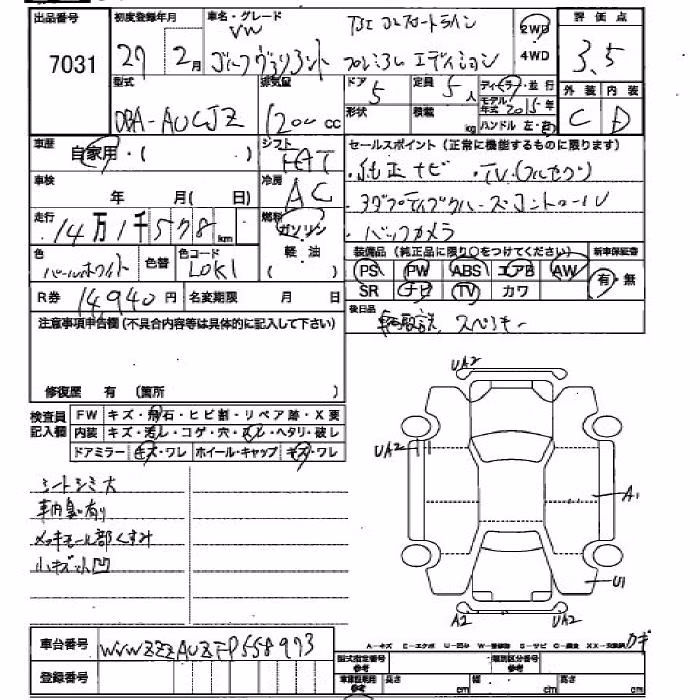 出品番号 初度登録年月 車名・グレード TSI コンフォートライン 2WD 評価点
7031 27年 2月 VW ゴルフヴァリアント プレミアム エディション 4WD 3.5
型式 排気量 ドア 5 定員 5人 ディーラー・並行 外装 内装
DBA-AUCJZ 1200cc 形状 積載 kg モデル年式 2015年 C D
ハンドル 左・右
車歴 自家用・( ) シフト FAT セールスポイント(正常に機能するものに限ります)
車検 年 月( 日) 冷房 AC ・純正ナビ ・TV(フルセグ)
・アダプティブクルーズコントロール
走行 14万1千578km 燃料 ガソリン ・バックカメラ
軽・油 ( )
色 パールホワイト 色替 色コード L0K1 装備品(純正品に限り○をつけてください) 新車保証書
PS PW ABS エアB AW 有・無
R券 14,940円 名変期限 月 日 SR ナビ TV カワ
注意事項申告欄(不具合内容等は具体的に記入して下さい) 後日品 スペアキー
修復歴 有 (箇所 )
検査員記入欄 FW キズ・飛石・ヒビ割・リペア跡・X要
内装 キズ・汚レ・コゲ・穴・スレ・ヘタリ・破レ
ドアミラー キズ・ワレ ホイール・キャップ キズ・ワレ
UA2
UA2
シートシミ大 A1
車内臭い有り
メッキモール部くすみ
小キズ小凹 U1
A2 UA2
車台番号 WVWZZZAUZFP558973
A-キズ E-エクボ U-凹み
登録番号 型式指定番号 参考 類別区分番号 参考
車庫証明用 参考 長さ cm 幅 cm 高さ cm